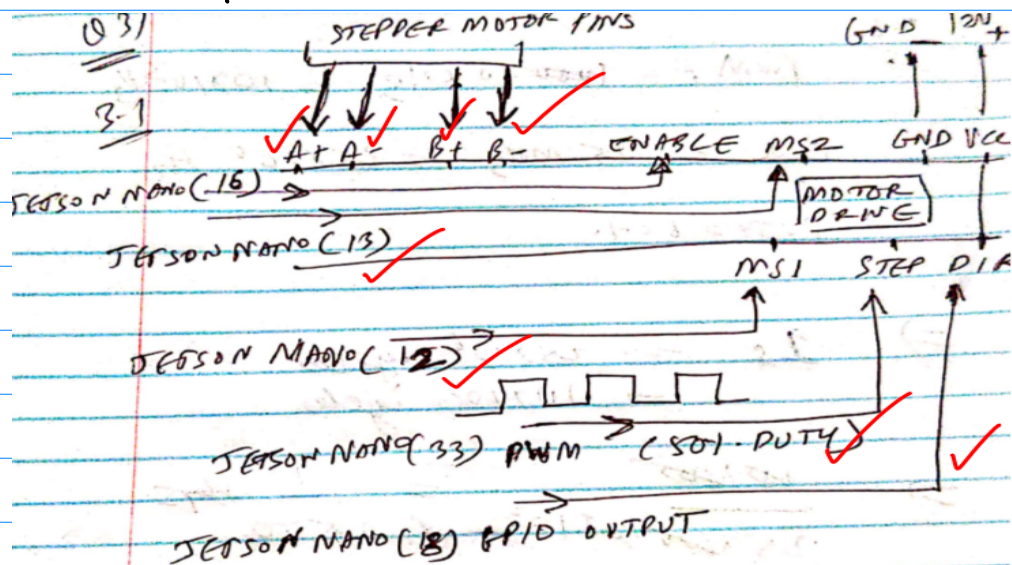 Q 3)
STEPPER MOTOR PINS
GND 12V
- +
3-1
A+ A- B+ B- ENABLE MS2 GND VCC
JETSON NANO (16)
MOTOR
DRIVE
JETSON NANO (13)
MS1 STEP DIR
JETSON NANO (12)
JETSON NANO (33) PWM (50%. DUTY)
JETSON NANO (18) GPIO OUTPUT